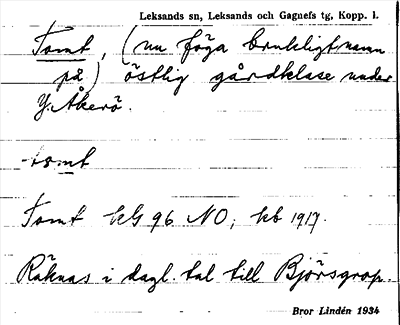 Leksands sn, Leksands och Gagnefs tg, Kopp. l.
Tomt, (nu föga brukligt namn
på) östlig gårdklase under
Y. Åkerö.
-tomt
Tomt kG 96 NO; kb 1917.
Räknas i dagl. tal till Björsgrop.
Bror Lindén 1934